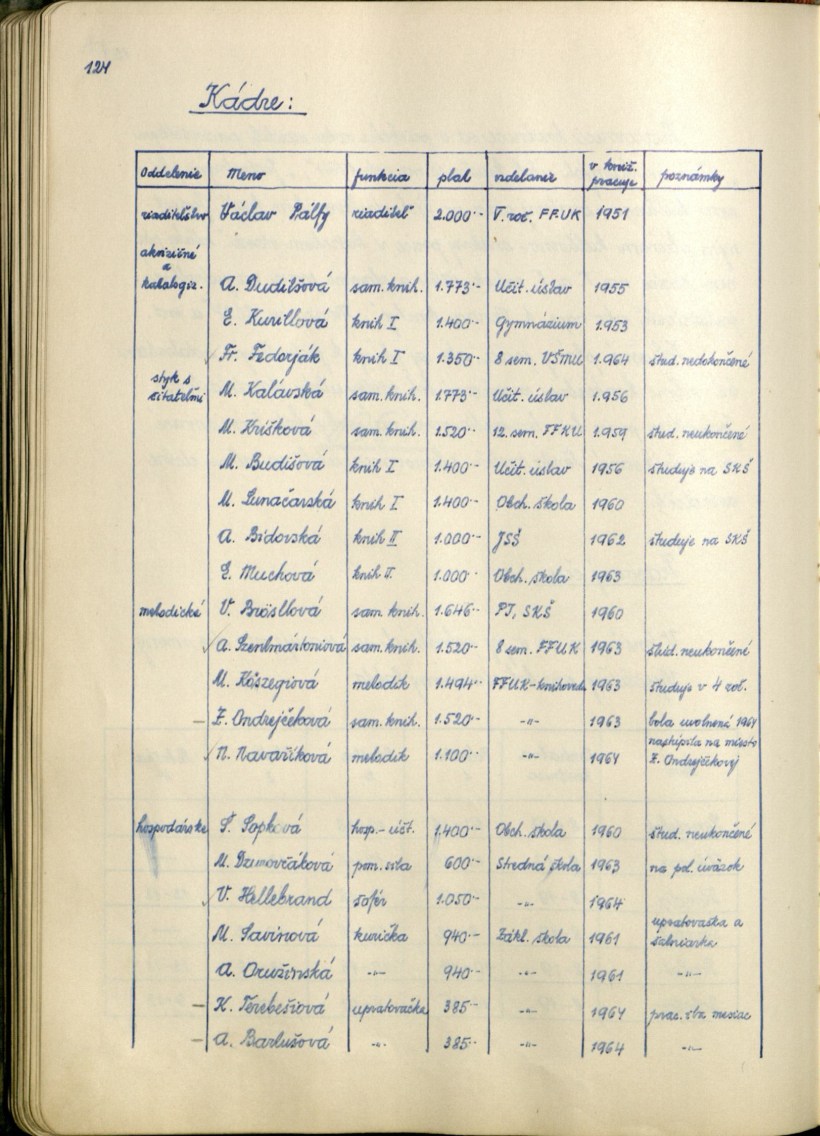 124
Kádre:
Oddelenie Meno funkcia plat vzdelanie v kniž. pracuje poznámky
riaditeľstvo Václav Pálfy riaditeľ 2.000·- V. roč. FFUK 1951
akvizičné
a
katalogiz. A. Dudilšová sam. knih. 1.773·- Učit. ústav 1955
E. Kurillová knih I 1.400·- Gymnázium 1.953
Fr. Fedorják knih I 1.350·- 8 sem. VŠMU 1.964 štud. nedokončené
styk s
čitateľmi M. Kalavská sam. knih. 1.773·- Učit. ústav 1.956
M. Krišková sam. knih. 1.520·- 12. sem. FFKU 1.959 štud. neukončené
M. Budišová knih I 1.400·- Učit. ústav 1956 študuje na SKŠ
M. Lunačarská knih I 1.400·- Obch. škola 1960
A. Bidovská knih II 1.000·- JSŠ 1962 študuje na SKŠ
E. Muchová knih II. 1.000· Obch. škola 1963
metodické V. Brösllová sam. knih. 1.646·- PI, SKŠ 1960
A. Szentmártoniová sam. knih. 1.520·- 8 sem. FFUK 1963 štúd. neukončené
M. Köszegiová metodik 1.494·- FFUK-knihoved. 1963 študuje v 4 roč.
– Z. Ondrejčeková sam. knih. 1.520·- -"- 1963 bola uvolnená 1964
N. Navaříková metodik 1.100·- -"- 1964 nastúpila na miesto Z. Ondrejčekovej
hospodárske Š. Sopková hosp.-účt. 1.400·- Obch. škola 1960 štud. neukončené
M. Dzurovčáková pom. sila 600·- Stredná škola 1963 na pol. úväzok
V. Hellebrand šofér 1.050·- -"- 1964
M. Savinová kurička 940·- Zákl. škola 1961 upratovačka a šatniarka
A. Oružinská -"- 940·- -"- 1961 -"-
– K. Terebešiová upratovačka 385·- -"- 1964 prac. sbz mesiac
– A. Barlušová -"- 385·- -"- 1964 -"-